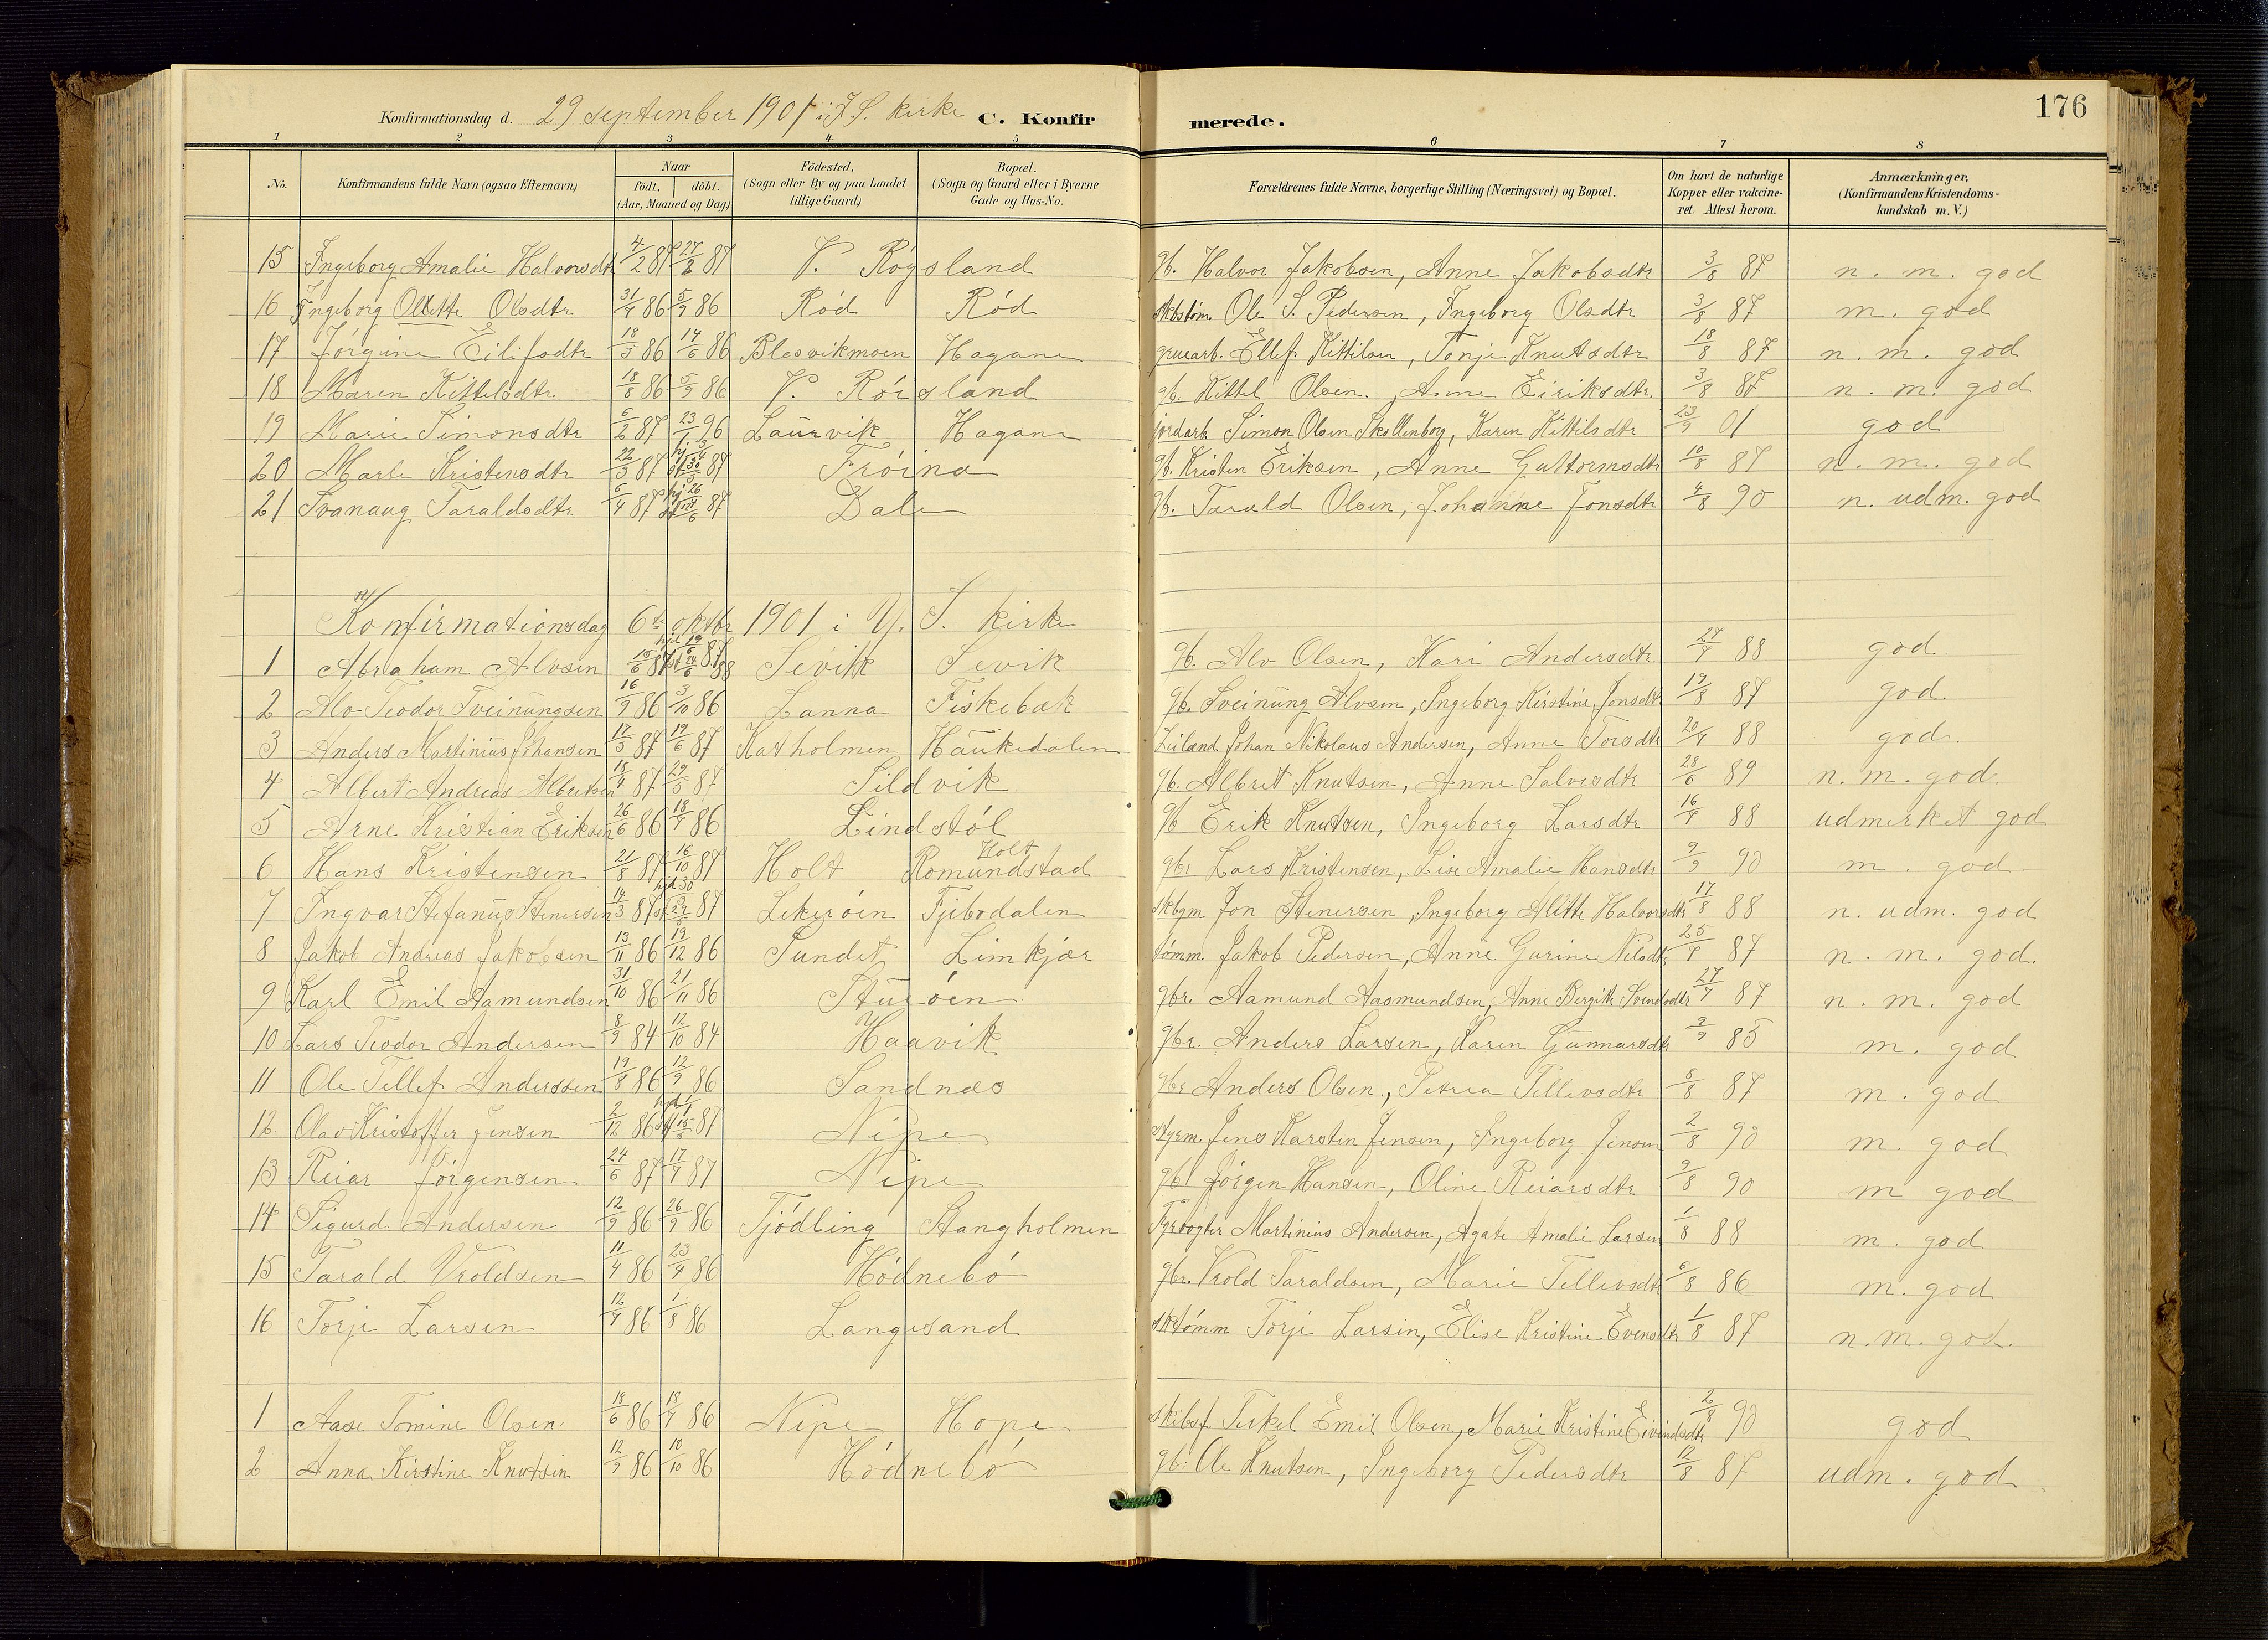 Konfirmationsdag d. 29 september 1901 i S. kirke C. Konfirmerede. 176
1 2 3 4 5 6 7 8
No. Konfirmandens fulde Navn (ogsaa Efternavn) Naar födt. döbt. (Aar, Maaned og Dag) Födested. (Sogn eller By og paa Landet tillige Gaard) Bopæl. (Sogn og Gaard eller i Byerne Gade og Hus-No. Forældrenes fulde Navne, borgerlige Stilling (Næringsvei) og Bopæl. Om havt de naturlige Kopper eller vakcineret. Attest herom. Anmærkninger. (Konfirmandens Kristendomskundskab m. V.)
15 Ingeborg Amalie Halvorsdtr 4/2 87 27/2 87 V. Røysland gb. Halvor Jakobsen, Anne Jakobsdtr 3/8 87 n. m. god
16 Ingeborg Olette Olsdtr 86 5/9 86 Rød Rød Ole S. Pedersen, Ingeborg Olsdtr 3/8 87 m. god
17 Jørgine Eilifsdtr 18/5 86 14/6 86 Blesvikmoen Hagane gruearb. Ellef Kittilsen, Tonje Knutsdtr 18/8 87 n. m. god
18 Maren Kittelsdtr. 18/8 86 5/9 86 V. Røisland gb. Kittel Olsen, Anne Eiriksdtr. 3/8 87 n. m. god
19 Marie Simonsdtr 6/2 87 23/1 96 Laurvik Hagane jordarb. Simon Olsen Skollenborg, Karen Kittilsdtr 23/9 01 god
20 Marte Kristensdtr 22/3 87 87 Frøina gb. Kristen Eriksen, Anne Guttormsdtr 10/8 87 n. m. god
21 Svanaug Taraldsdtr 6/4 87 87 Dale gb. Tarald Olsen, Johanne Jonsdtr 4/8 90 n. udm. god
Konfirmationsdag 6te oktbr 1901 i Y. S. kirke
1 Abraham Alvsen 15/6 87 Sevik Sevik gb. Alv Olsen, Kari Andersdtr 27/7 88 god.
2 Alv Teodor Sveinungsen 16/9 86 3/10 86 Lanna Fiskebæk gb. Sveinung Alvsen, Ingeborg Kirstine Jonsdtr 19/8 87 god.
3 Anders Martinius Johansen 17/5 87 19/6 87 Katholmen Haukedalen Leiland Johan Nikolaus Andersen, Anne Torsdtr 20/7 88 god.
4 Albert Andreas Albretsen 18/4 87 29/5 87 Sildvik gb. Albret Knutsen, Anne Salvesdtr 28/6 89 n. m. god.
5 Arne Kristian Eriksen 26/6 86 18/7 86 Lindstøl gb Erik Knutsen, Ingeborg Larsdtr 16/7 88 udmerket god
6 Hans Kristensen 21/8 87 16/10 87 Holt Holt Romundstad gbr Lars Kristensen, Lise Amalie Hansdtr 9/9 90 m. god
7 Ingvar Stefanus Stenersen 14/3 87 87 Lekerøen Fjibsdalen skbym Jon Stenersen, Ingeborg Alette Halvorsdtr 17/8 88 n. udm. god
8 Jakob Andreas Jakobsen 13/11 86 19/12 86 Sundet Limkjær tømm. Jakob Pedersen, Anne Gurine Nilsdtr 25/7 87 n. m. god.
9 Karl Emil Aamundsen 31/10 86 21/11 86 Sturøen gbr. Aamund Aasmundsen, Anne Bergitte Svendsdtr 27/7 87 n. m. god
10 Lars Teodor Andersen 8/9 84 12/10 84 Haavik gbr. Anders Larsen, Karen Gunnarsdtr 9/9 85 m. god
11 Ole Tellef Anderssen 19/8 86 12/9 86 Sandnæs gbr Anders Olsen, Petrea Tellevsdtr 8/8 87 m. god
12 Olav Kristoffer Jensen 2/12 86 hjd 1/1 87 Nipe styrm. Jens Karsten Jensen, Ingeborg Jensen 2/8 90 m. god
13 Reiar Jørgensen 24/6 87 17/7 87 Nipe gbr Jørgen Hansen, Oline Reiarsdtr 9/8 90 m god
14 Sigurd Andersen 12/9 86 26/9 86 Tjødling Stangholmen Fyrvogter Martinius Andersen, Agate Amalie Larsen 1/8 88 m. god
15 Tarald Vroldsen 11/4 86 23/4 86 Hødnebø gbr. Vrold Taraldsen, Marie Tellevsdtr 6/8 86 m. god
16 Torje Larsen 12/7 86 1/8 86 Langesand sktømm Torje Larsen, Elise Kristine Evensdtr 1/8 87 n. m. god.
1 Aase Tomine Olsen 18/6 86 18/7 86 Nipe Hope skibsf. Terkel Emil Olsen, Marie Kristine Eivindsdtr 2/8 90 god
2 Anna Kirstine Knutsen 12/9 86 10/10 86 Hødnebø gb. Ole Knutsen, Ingeborg Pedersdtr 12/8 87 udm. god